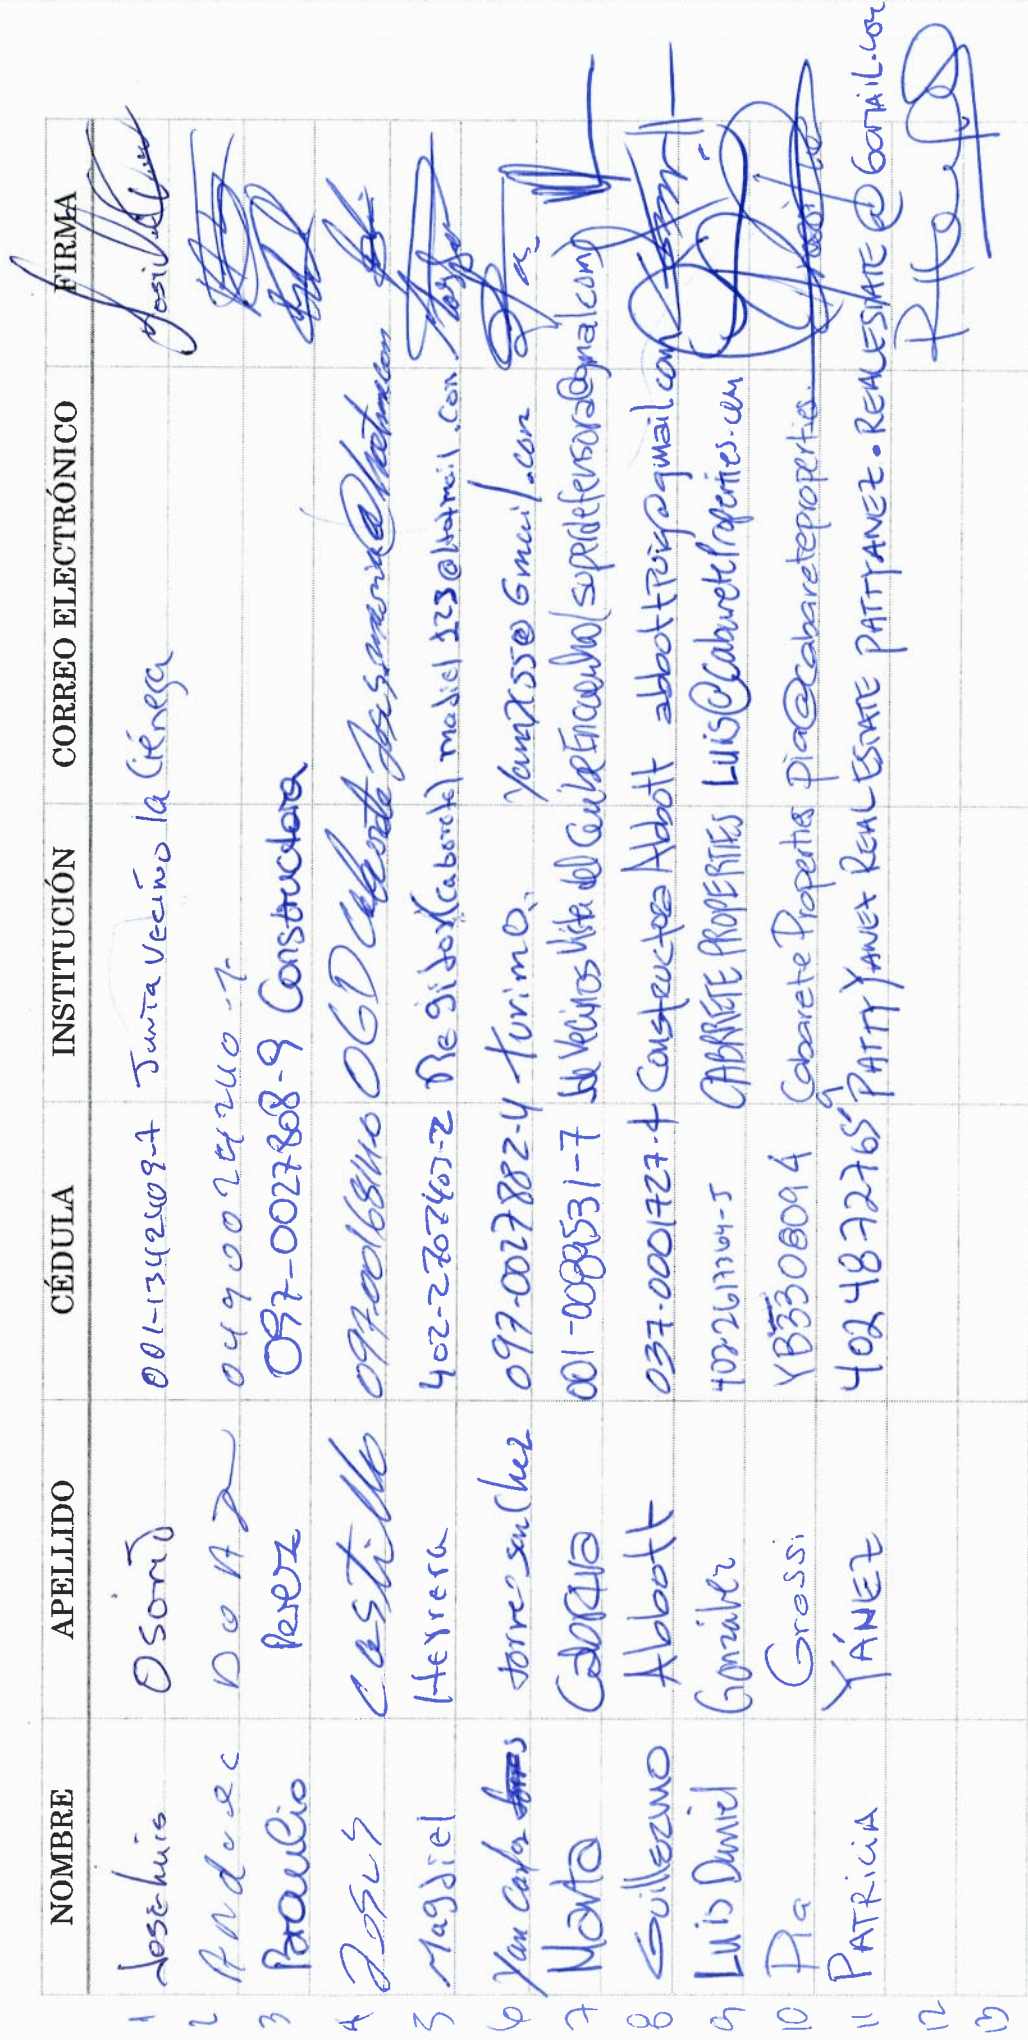 NOMBRE APELLIDO CÉDULA INSTITUCIÓN CORREO ELECTRÓNICO FIRMA
1 Jose Luis Osorio 001-1342409-7 Junta Vecino la Ciénega
2 0490024240-7
3 Braulio Perez 097-0027808-9 Constructora
4 Jesus Castillo 09700168440 OGD Cabarete
5 Magdiel Herrera 402-2707403-2 Regidor (Cabarete) madiel123@hotmail.com
6 Yan Carlos torres sanchez 097-0027882-4 turimo. Yanux55@Gmail.com
7 Marta Cabrera de Vecinos Vista del Caribe Encuentro (superdefensora@gmail.com)
8 Guillermo Abbott 037-0001727-4 Constructora Abbott abbottpuig@gmail.com
9 Luis Daniel González CABRETE PROPERTIES LUIS@CabareteProperties.com
10 Pia Grassi YB3308094 Cabarete Properties pia@cabareteproperties.
11 PATRICIA YÁNEZ PATTY YANEZ REAL ESTATE PATTYANEZ.REALESTATE@GMAIL.COM
12
13